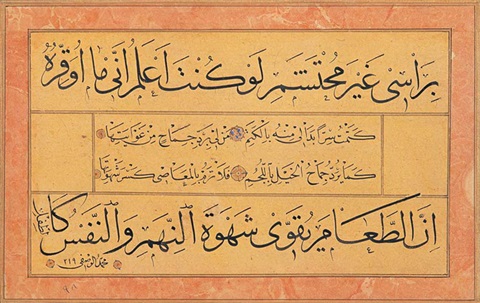 بِرَاْسى غَيْرَ مُحْتَشَمِ لَوْ كُنْتُ اَعْلَمُ اَنّى مَا اُوَقِّرُهُ
كَتَمْتُ سِرًّا بَدَا لى مِنْهُ بِالْكَتَمِ مَنْ لى بِرَدِّ جِمَاحٍ مِنْ غَوَايَتِهَا
كَمَا يُرَدُّ جِمَاحُ الْخَيْلِ بِاللُّجُمِ فَلَا تَرُمْ بِالْمَعَاصى كَسْرَ شَهْوَتِهَا
اِنَّ الطَّعَامَ يُقَوّى شَهْوَةَ النَّهِمِ وَالنَّفْسُ كَا
محمد الوصفى ٢١٩